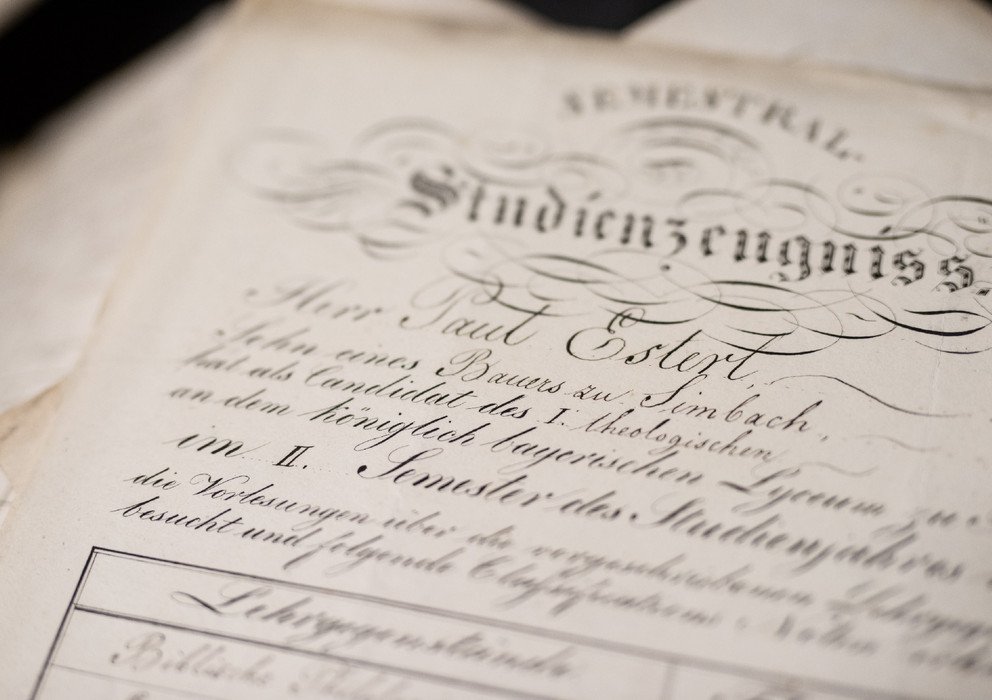 SEMESTRAL-
Studienzeugniss.
Herr Paul Estert,
Sohn eines Bauers zu Simbach,
hat als Candidat des I. theologischen
an dem königlich bayerischen Lyceum zu
im II. Semester des Studienjahres
die Vorlesungen über die vorgeschriebenen
besucht und folgende Classifications-Noten
Lehrgegenstände
Biblische